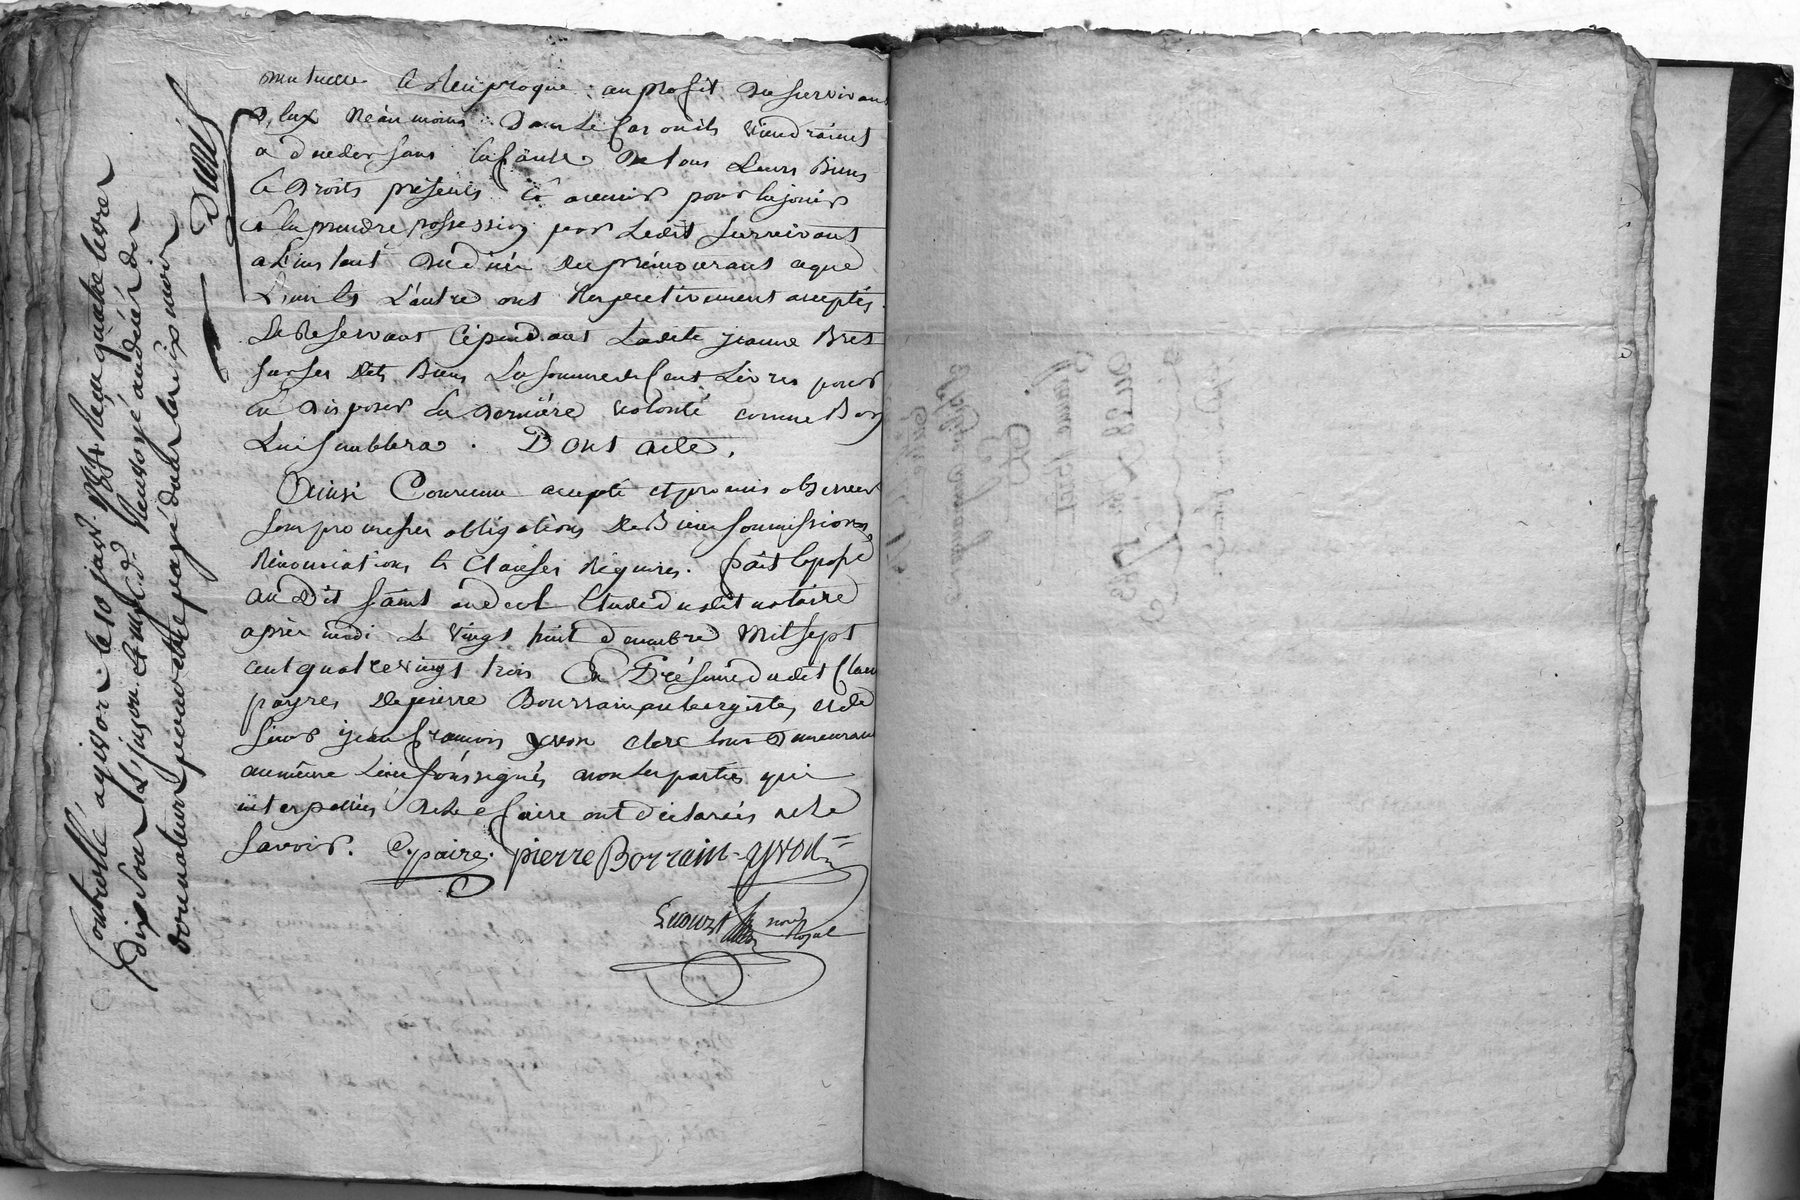 mutuelle & Reciproque au profit du survivant
D'Eux Néanmoins Dans le Cas ou ils viendraient
a deceder sans Enfants De tous Leurs Biens
& Droits présents & avenir pour En jouir
& En prendre possession par Ledit survivant
a L'instant du décés du prémourant ce que
L'un & L'autre ont Respectivement acceptés.
Se Reservant Cépendant Ladite jeanne Bret
sur ses dits Biens La somme de Cent Livres pour
En disposer En dernière volonté comme Bon
Lui semblera. Dont acte.
Ainsi Convenu accepté et promis observer
sous promesses obligations De Biens soumissions
Rénonciations & Clauses Réquises. fait & passé
audit saint Etude dudit notaire
après midi Le vingt huit décembre Mil sept
cent quatre vingt trois En Présence dudit Claude
payres De pierre Bourrain aubergiste, et de
sieur jean françois yvon clerc tous demeurant
au même Lieu soussignés non les parties qui
interpellées De le faire ont déclarées ne le
savoir. C. paire. pierre Borrain yvon
no.re Royal
Controllé a le 10 janv. 1784 Reçu quatre livres
dix sous Renvoyé au décés du
donnateur pour être payé dans les six mois